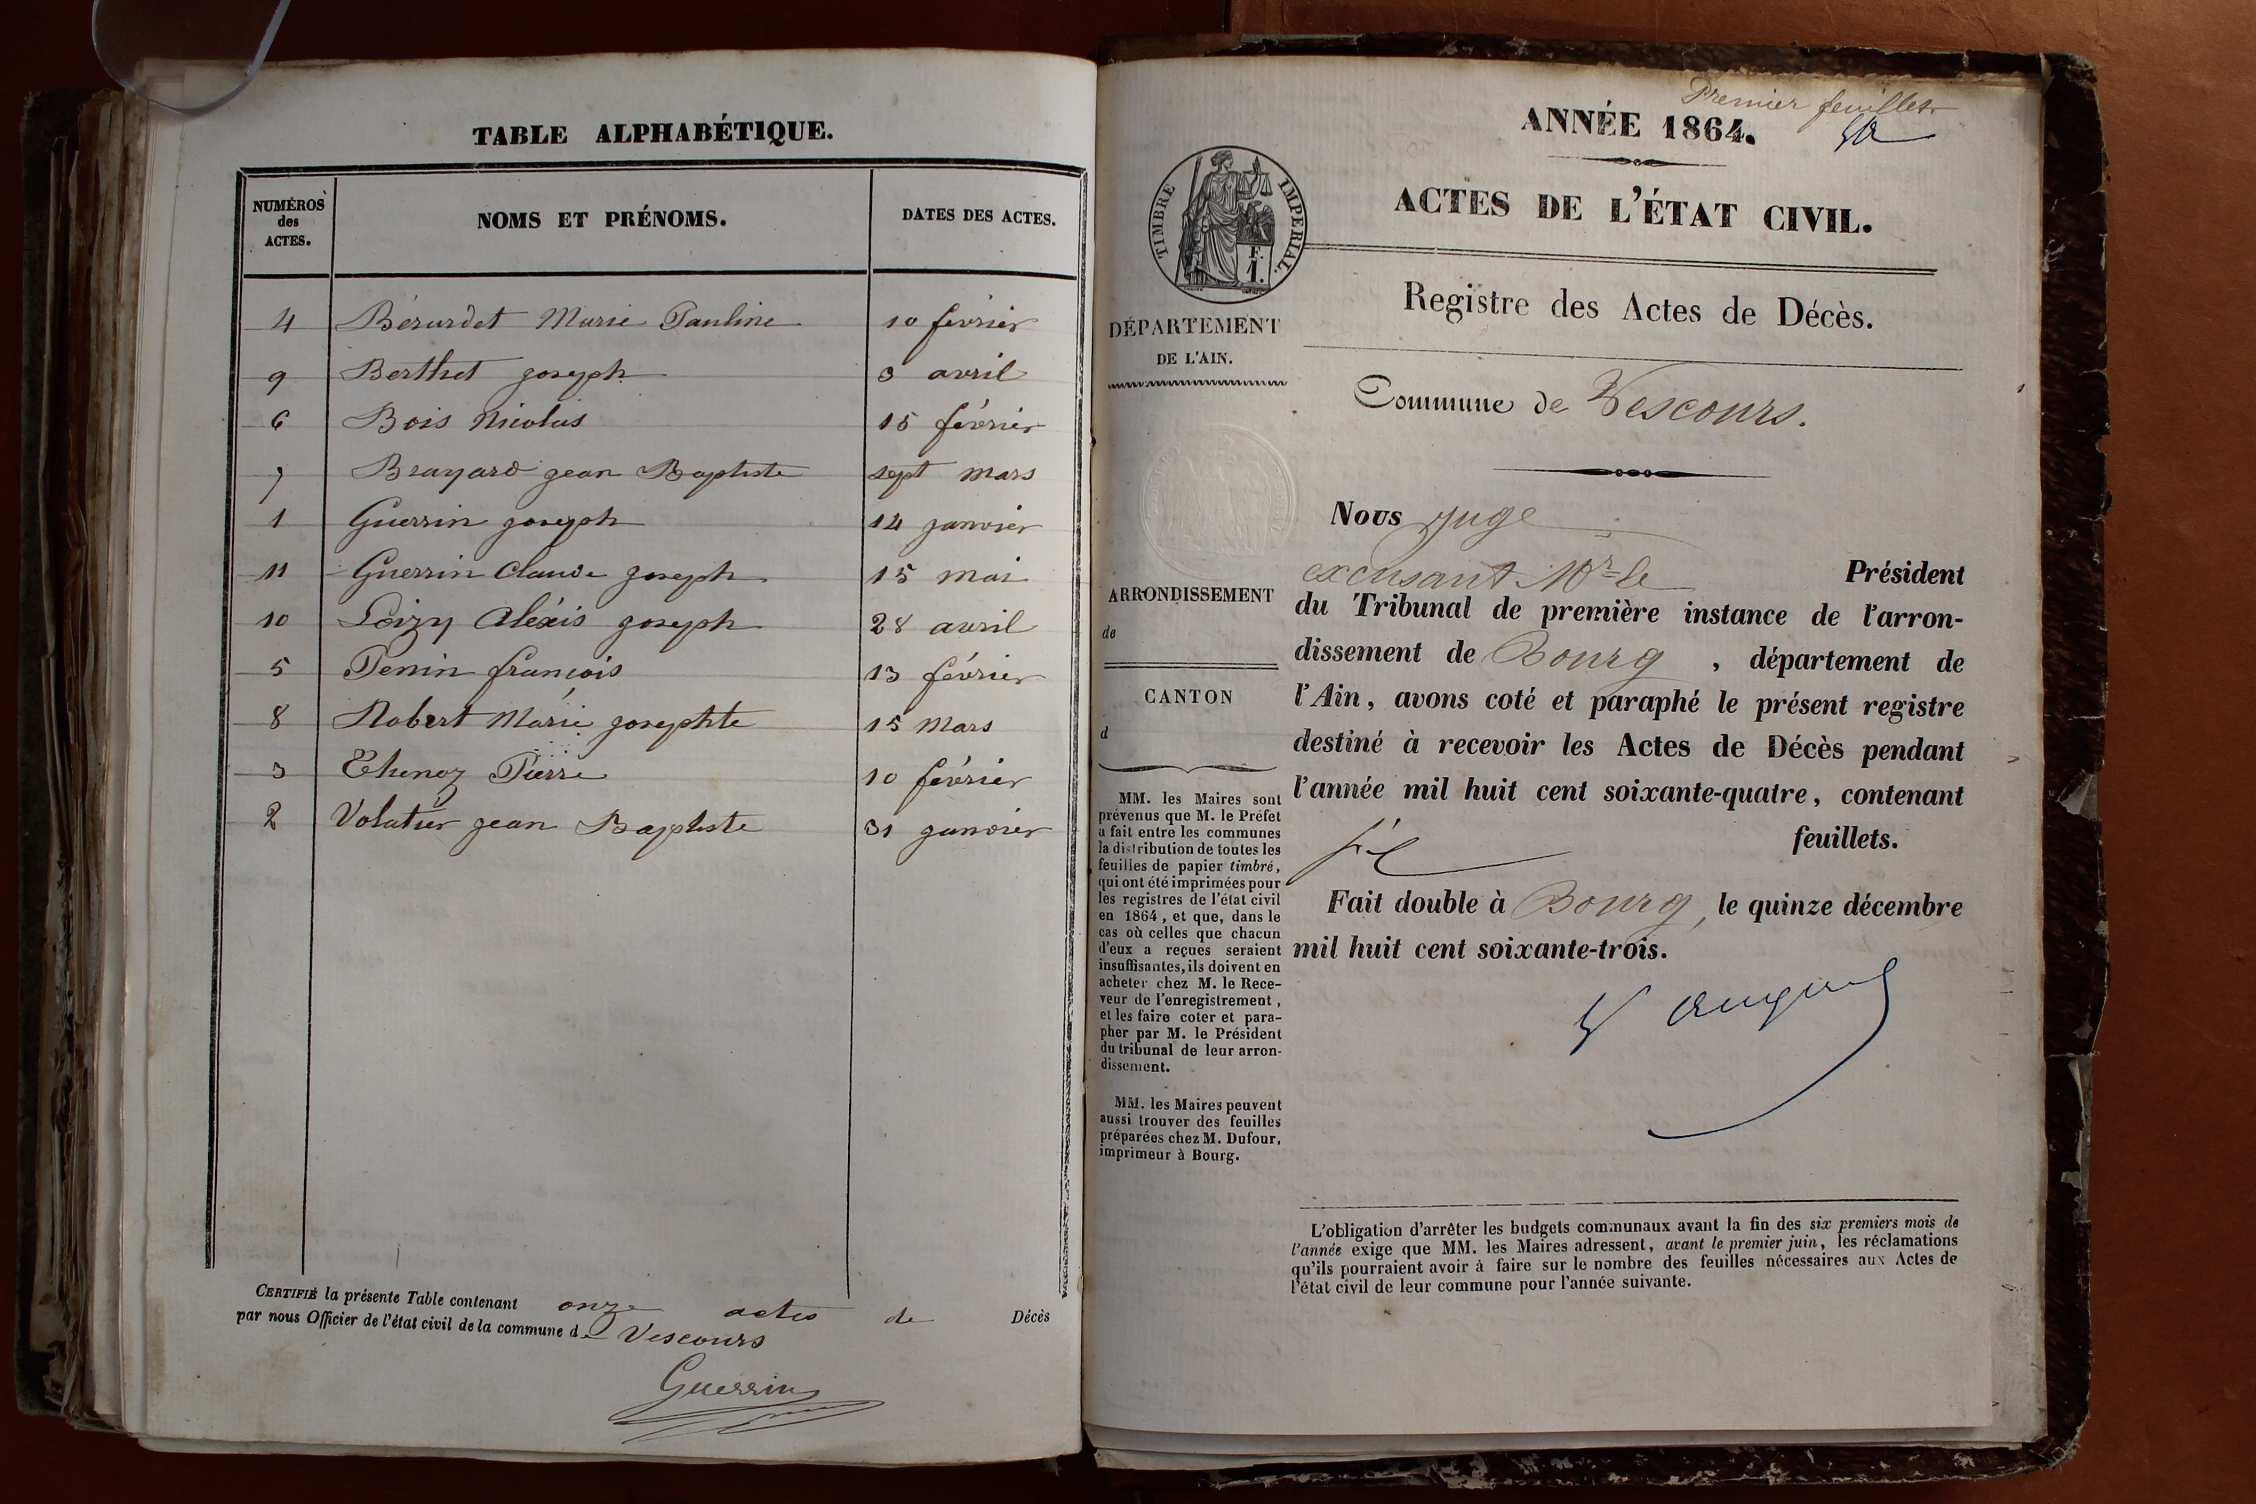 TABLE ALPHABÉTIQUE.
NUMÉROS des ACTES. NOMS ET PRÉNOMS. DATES DES ACTES.
4 Bérardet Marie Pauline 10 février
9 Berthet joseph 3 avril
6 Bois Nicolas 15 février
7 Brayard jean Baptiste sept mars
1 Guerrin joseph 14 janvier
11 Guerrin Claude joseph 15 mai
10 Loizy Aléxis joseph 28 avril
5 Penin françois 13 février
8 Robert Marie josephte 15 Mars
3 Thenoz Pierre 10 février
2 Volatier jean Baptiste 31 janvier
CERTIFIÉ la présente Table contenant onze actes de Décès
par nous Officier de l'état civil de la commune de Vescours
Guerrin
Premier feuillet
ANNÉE 1864.
ACTES DE L'ÉTAT CIVIL.
TIMBRE IMPERIAL.
F.
1.
Registre des Actes de Décès.
DÉPARTEMENT
DE L'AIN.
Commune de Vescours.
ARRONDISSEMENT
de
CANTON
d
MM. les Maires sont
prévenus que M. le Préfet
a fait entre les communes
la distribution de toutes les
feuilles de papier timbré,
qui ont été imprimées pour
les registres de l'état civil
en 1864, et que, dans le
cas où celles que chacun
d'eux a reçues seraient
insuffisantes, ils doivent en
acheter chez M. le Rece-
veur de l'enregistrement,
et les faire coter et para-
pher par M. le Président
du tribunal de leur arron-
dissement.
MM. les Maires peuvent
aussi trouver des feuilles
préparées chez M. Dufour,
imprimeur à Bourg.
Nous juge
excusant Mr le Président
du Tribunal de première instance de l'arron-
dissement de Bourg, département de
l'Ain, avons coté et paraphé le présent registre
destiné à recevoir les Actes de Décès pendant
l'année mil huit cent soixante-quatre, contenant
feuillets.
Fait double à Bourg, le quinze décembre
mil huit cent soixante-trois.
L'obligation d'arrêter les budgets communaux avant la fin des six premiers mois de
l'année exige que MM. les Maires adressent, avant le premier juin, les réclamations
qu'ils pourraient avoir à faire sur le nombre des feuilles nécessaires aux Actes de
l'état civil de leur commune pour l'année suivante.